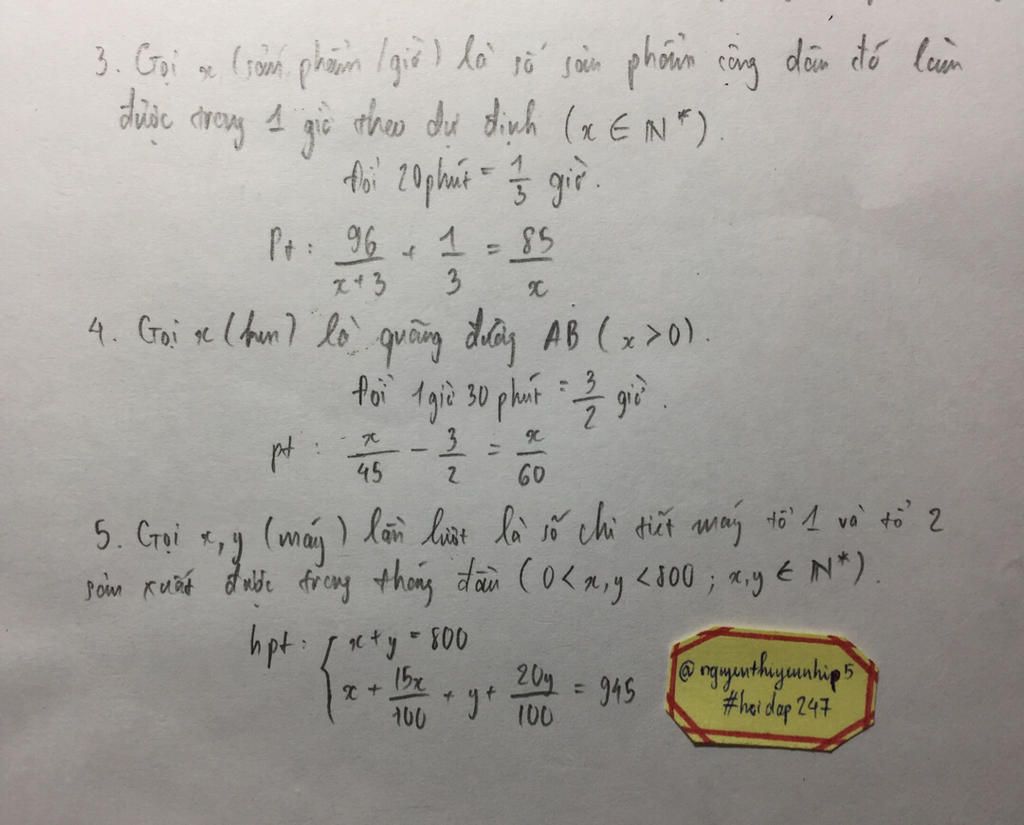 3. Gọi x (sản phẩm /giờ) là số sản phẩm công dân đó làm
được trong 1 giờ theo dự định (x ∈ ℕ*).
Đổi 20 phút = 1/3 giờ.
Pt : 96/(x+3) + 1/3 = 85/x
4. Gọi x (km) là quãng đường AB ( x > 0).
Đổi 1 giờ 30 phút = 3/2 giờ.
pt : x/45 - 3/2 = x/60
5. Gọi x, y (máy) lần lượt là số chi tiết máy tổ 1 và tổ 2
sản xuất được trong tháng đầu (0 < x, y < 800 ; x, y ∈ ℕ*).
hpt : { x + y = 800
x + 15x/100 + y + 20y/100 = 945
@nguyenthuyeunhip5
#hoidap247